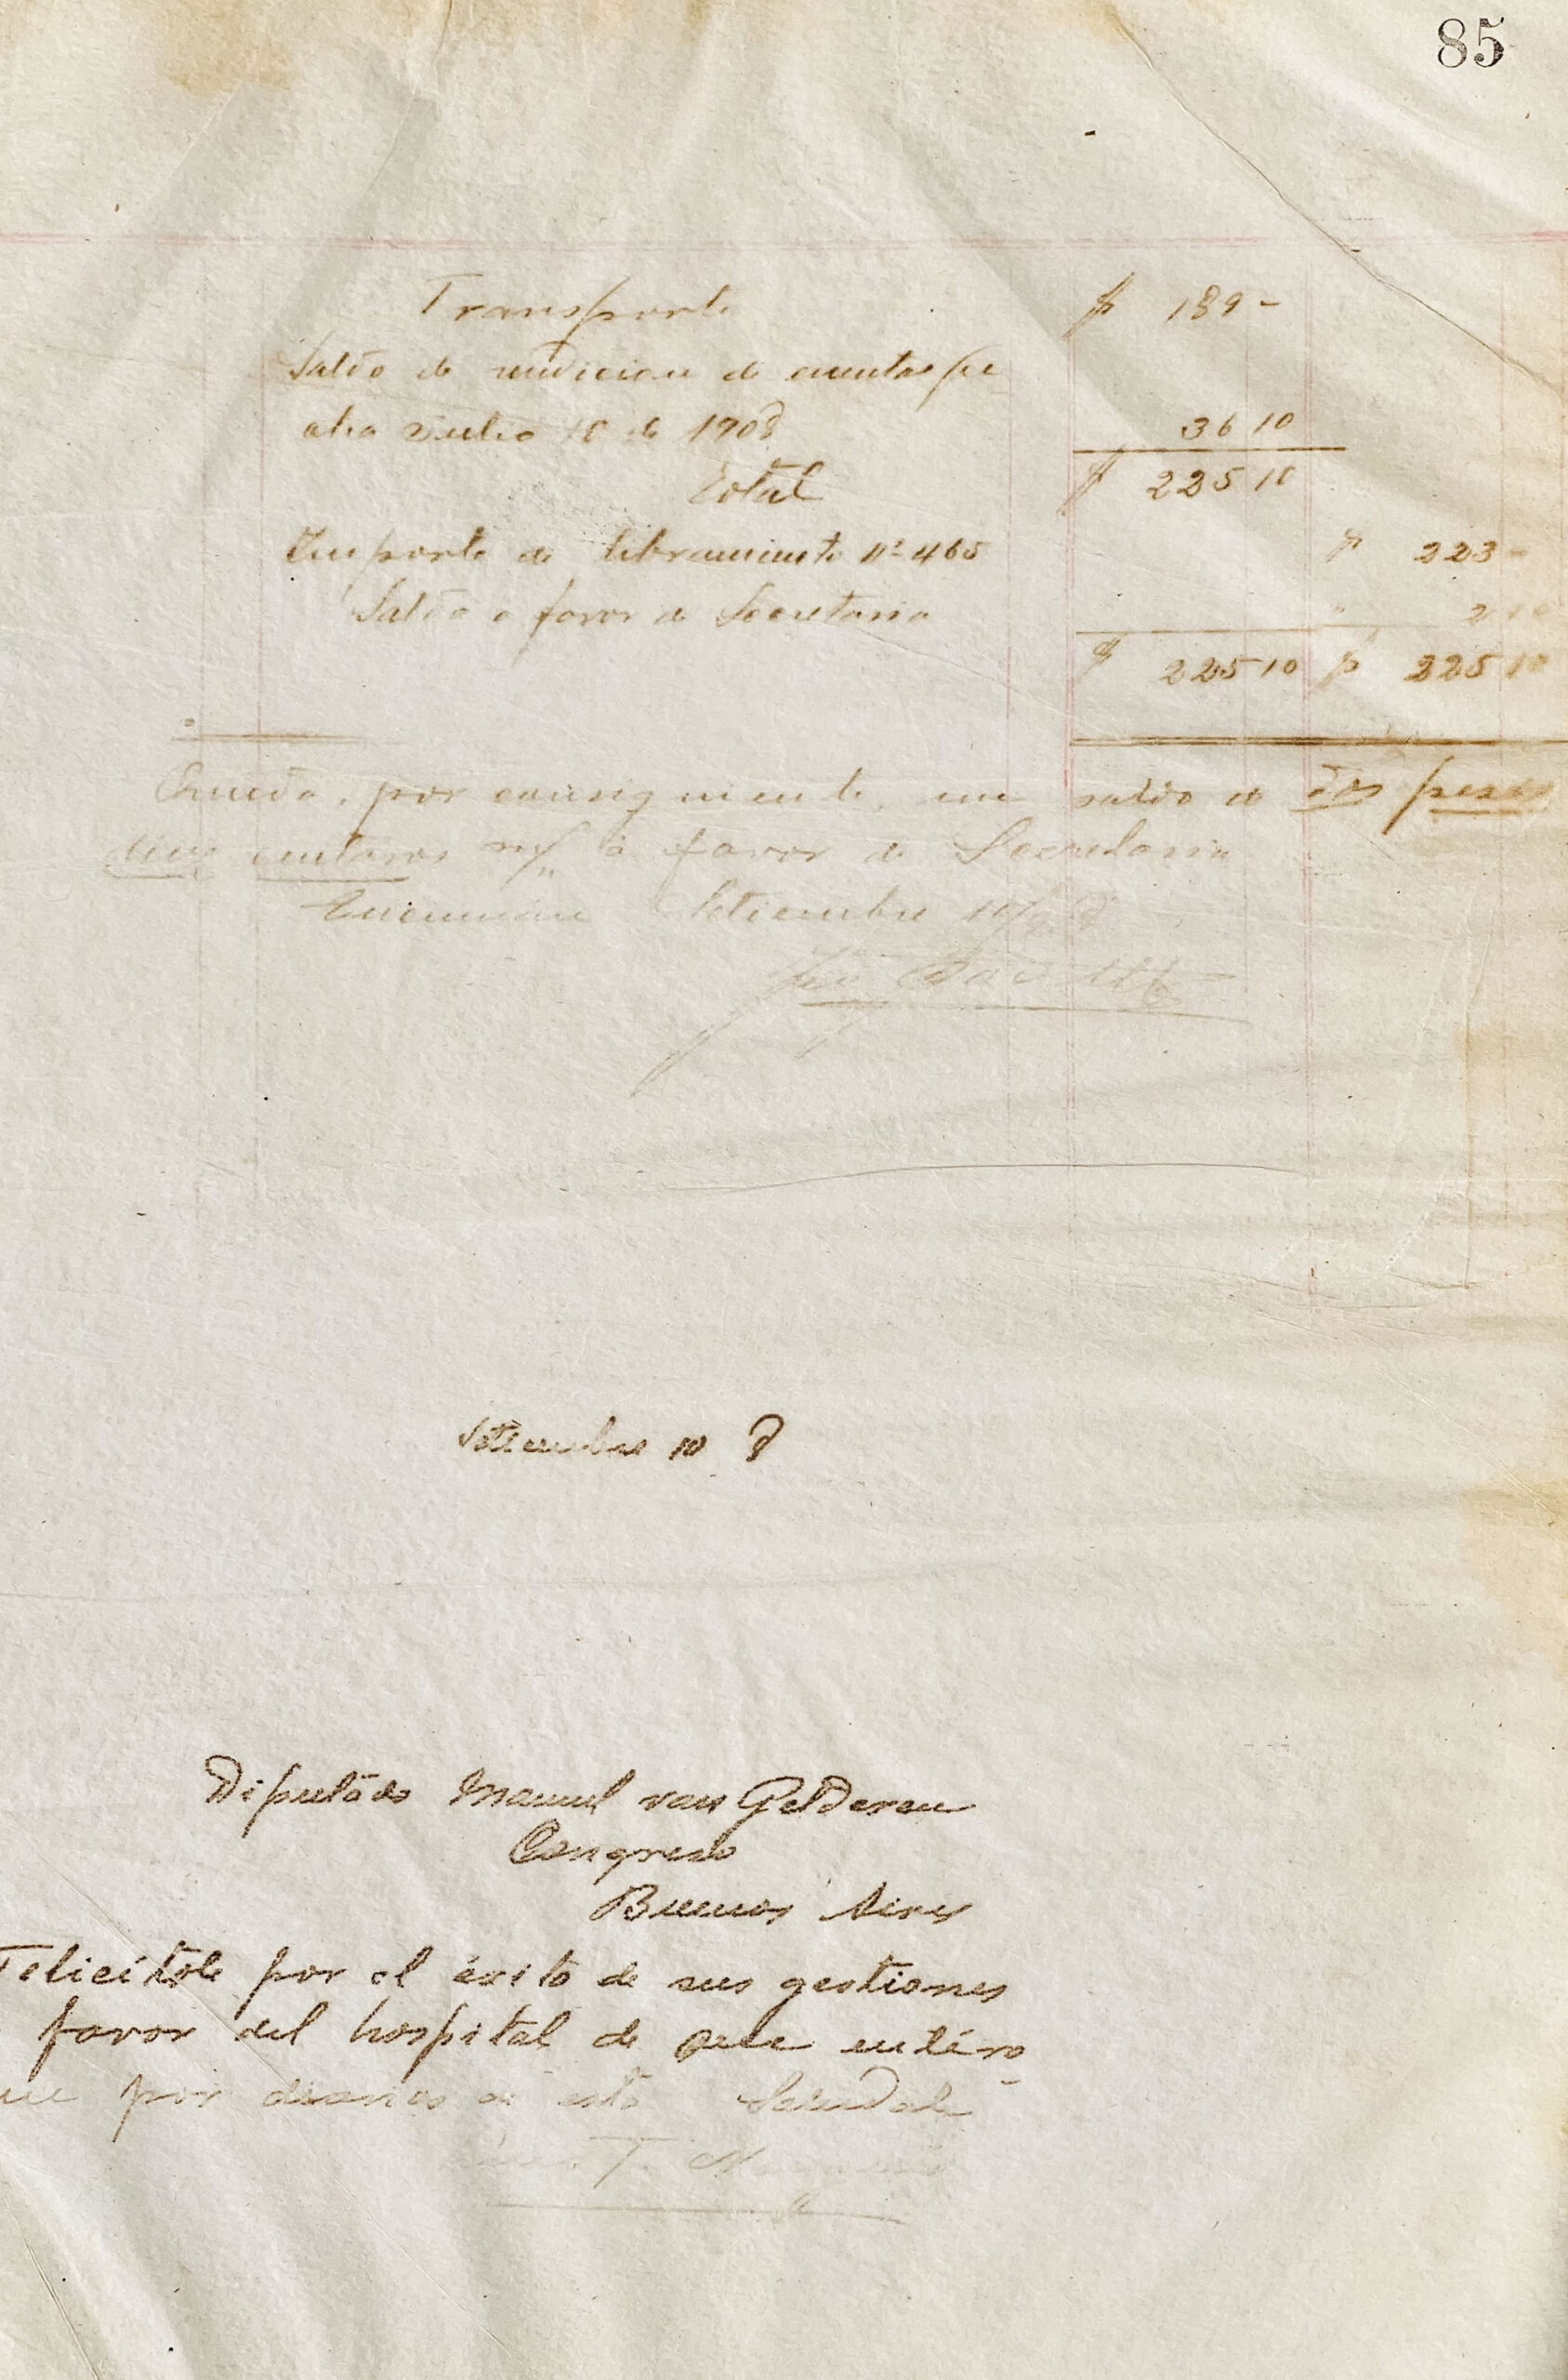 85
Transporte $ 189 -
Saldo de rendicion de cuentas fe
cha Julio 18 de 1908 36 10
Total $ 225 10
Importe de libramiento nº 465 $ 223 -
Saldo a favor de Secretaria " 2 10
$ 225 10 $ 225 10
Queda, por consiguiente, un saldo de dos pesos
diez centavos m/n á favor de Secretaria
Tucuman Setiembre 10/908
Setiembre 10 8
Diputado Manuel van Gelderen
Congreso
Buenos Aires
Felicítole por el éxito de sus gestiones
favor del hospital de que entéro
me por diarios de esta Salúdole